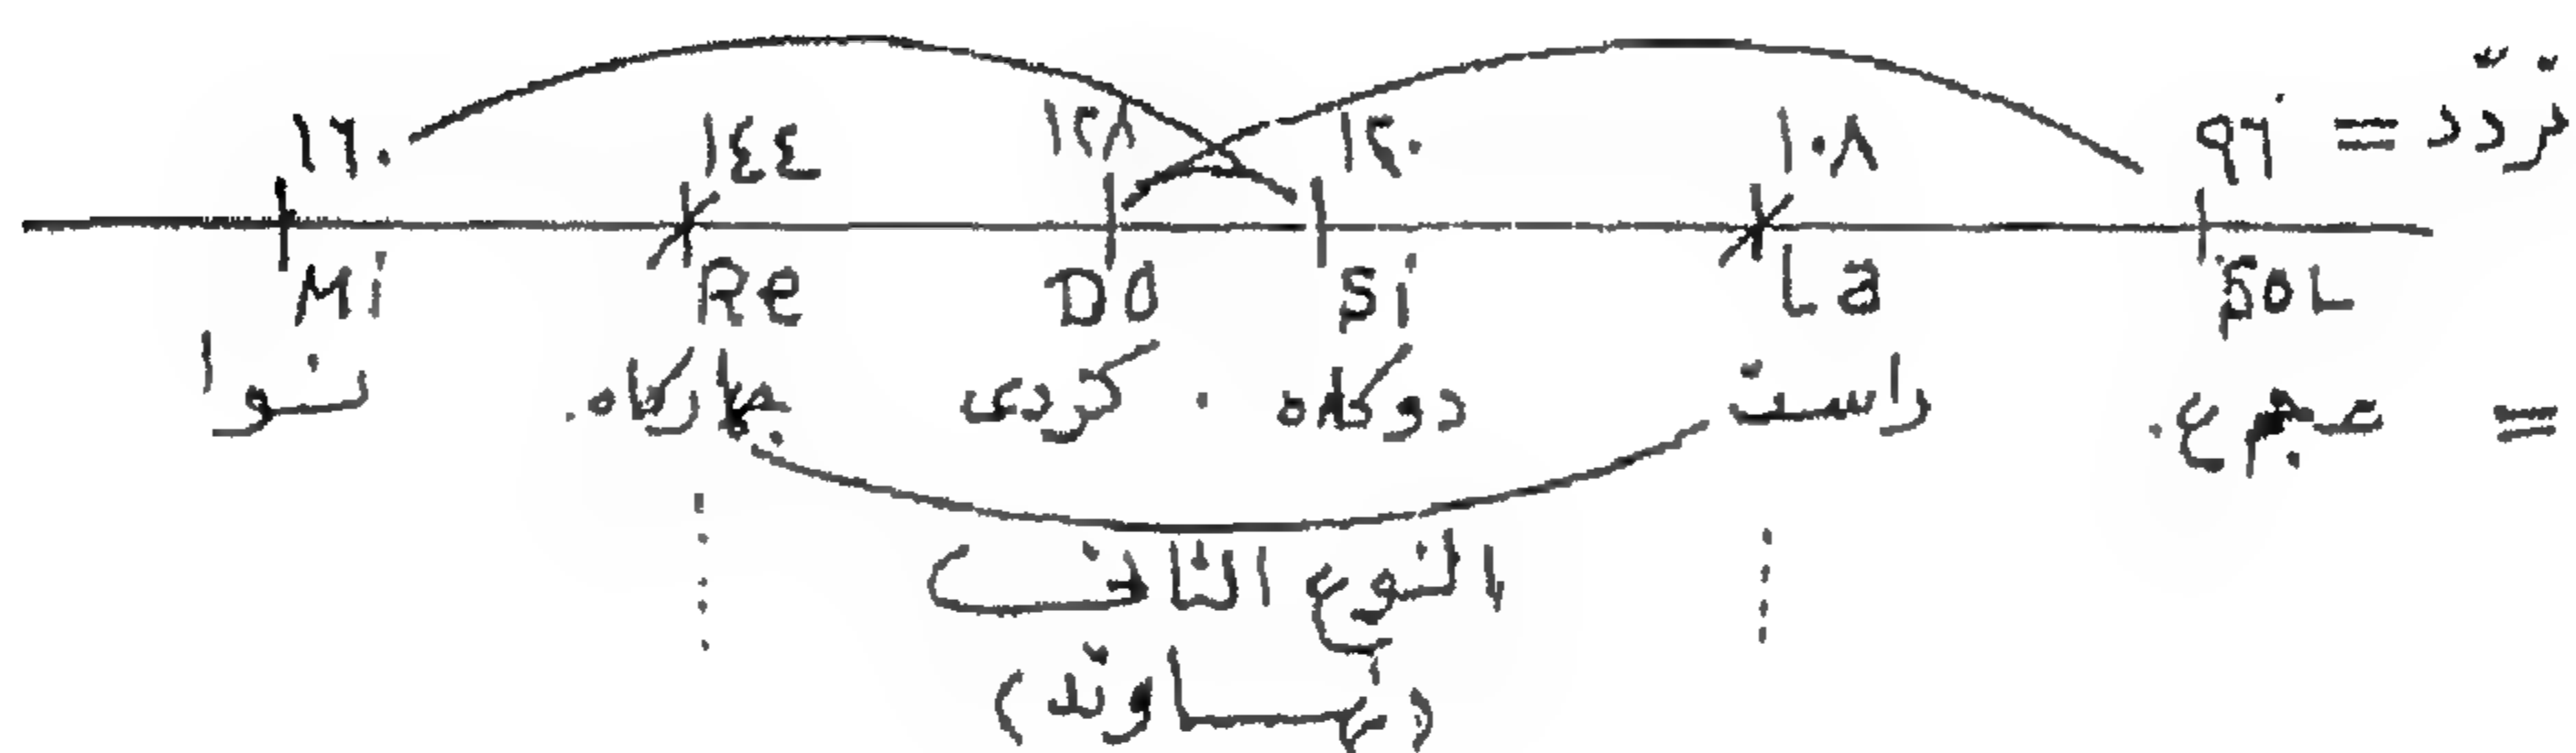 تردّد = ٩٦ ١٠٨ ١٢٠ ١٢٨ ١٤٤ ١٦٠
SOL La Si DO Re Mi
= عجم ع. راست دوكاه . كردى جهاركاه. نوا
النوع الثانى
(نهاوند)